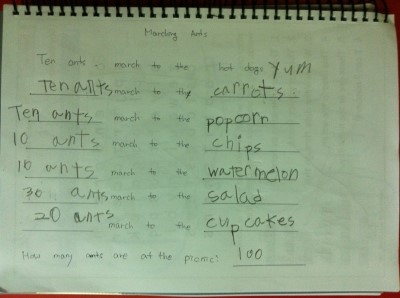 Marching Ants
Ten ants march to the hot dogs yum
Ten ants march to the carrots.
Ten ants march to the popcorn
10 ants march to the chips
10 ants march to the watermelon
30 ants march to the salad
20 ants march to the cupcakes
How many ants are at the picnic? 100